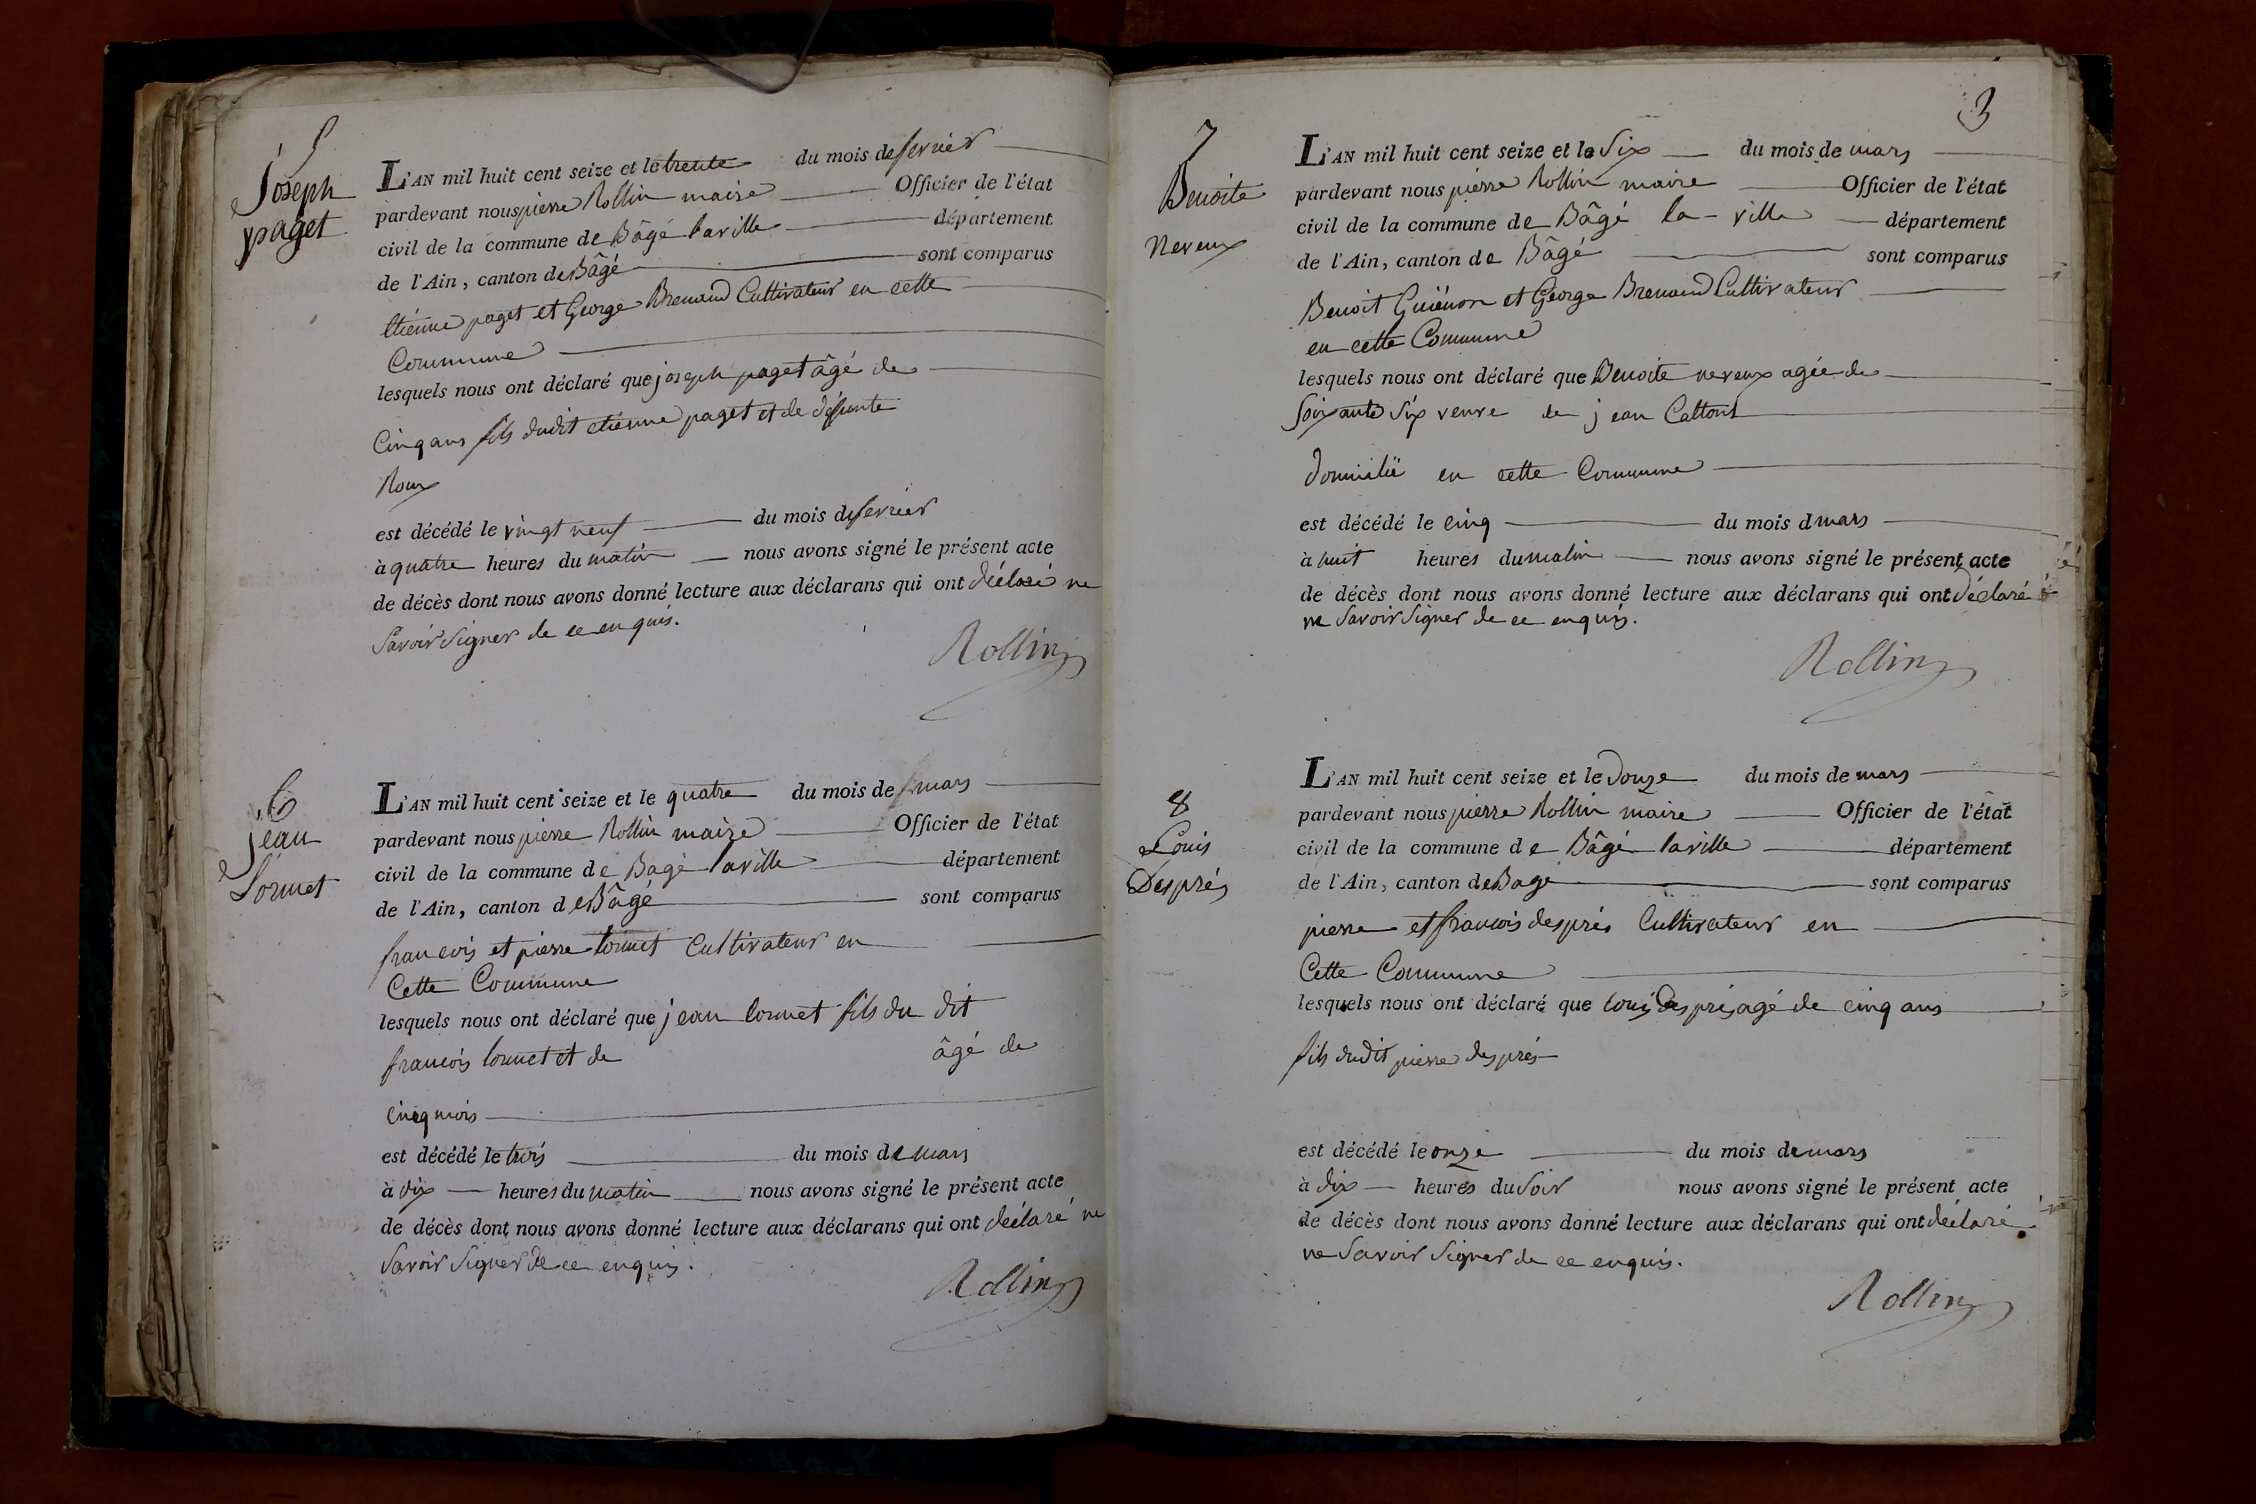 5
Joseph
paget
L'AN mil huit cent seize et le trente du mois de fevrier
pardevant nous pierre Rollin maire Officier de l'état
civil de la commune de Bâgé laville département
de l'Ain, canton de Bâgé sont comparus
etiénne paget et George Brenaud Cultivateur en cette
Commune
lesquels nous ont déclaré que joseph paget âgé de
Cinq ans fils dudit etiénne paget et de défunte
Roux
est décédé le vingt neuf du mois de fevrier
à quatre heures du matin nous avons signé le présent acte
de décès dont nous avons donné lecture aux déclarans qui ont déclaré ne
Savoir Signer de ce enquis.
Rollin
6
jean
Lornet
L'AN mil huit cent seize et le quatre du mois de mars
pardevant nous pierre Rollin maire Officier de l'état
civil de la commune de Bagé laville département
de l'Ain, canton de Bâgé sont comparus
francois et pierre lornet Cultivateur en
Cette Commune
lesquels nous ont déclaré que jean lornet fils du dit
francois lornet et de âgé de
Cinq mois
est décédé le trois du mois de mars
à dix heures du matin nous avons signé le présent acte
de décès dont nous avons donné lecture aux déclarans qui ont déclaré ne
Savoir Signer de ce enquis.
Rollin
3
7
Benoite
Neveux
L'AN mil huit cent seize et le Six du mois de mars
pardevant nous pierre Rollin maire Officier de l'état
civil de la commune de Bâgé la-ville département
de l'Ain, canton de Bâgé sont comparus
Benoit Guiénon et George Brenaud Cultivateur
en cette Commune
lesquels nous ont déclaré que Benoite neveux agée de
Soixante Six veuve de jean Cattont
domicilié en cette Commune
est décédé le cinq du mois d mars
à huit heures du matin nous avons signé le présent acte
de décès dont nous avons donné lecture aux déclarans qui ont déclaré
ne Savoir Signer de ce enquis.
Rollin
8
Louis
Després
L'AN mil huit cent seize et le Douze du mois de mars
pardevant nous pierre Rollin maire Officier de l'état
civil de la commune de Bâgé laville département
de l'Ain, canton de Bagé sont comparus
pierre et francois després Cultivateur en
Cette Commune
lesquels nous ont déclaré que louis Després agé de cinq ans
fils dudit pierre després
est décédé le onze du mois de mars
à dix heures du Soir nous avons signé le présent acte
de décès dont nous avons donné lecture aux déclarans qui ont déclaré
ne Savoir Signer de ce enquis.
Rollin